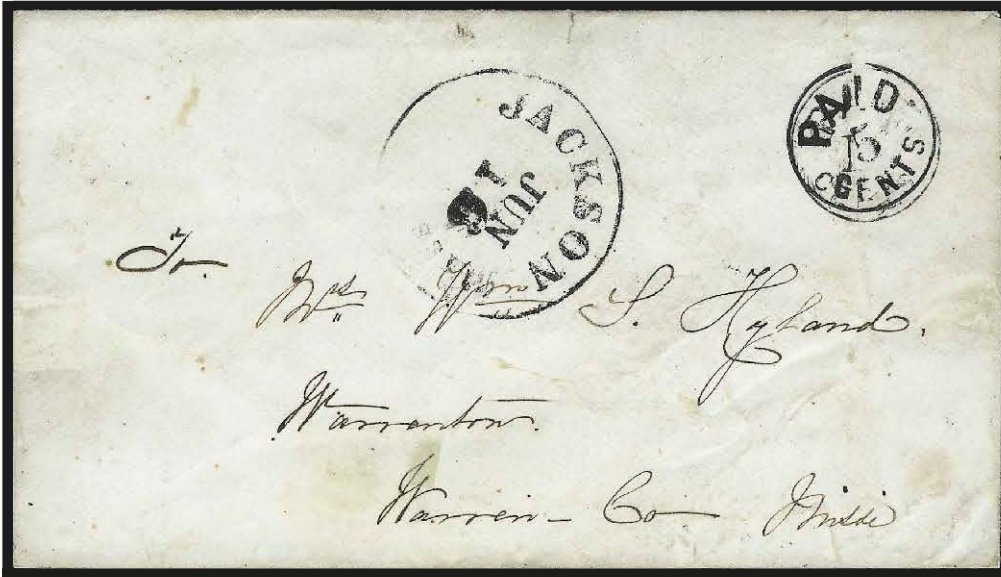 JACKSON
JUN
PAID
5
CENTS
To.
Mrs Wm S. Hyland.
Warrenton.
Warren - Co Missi